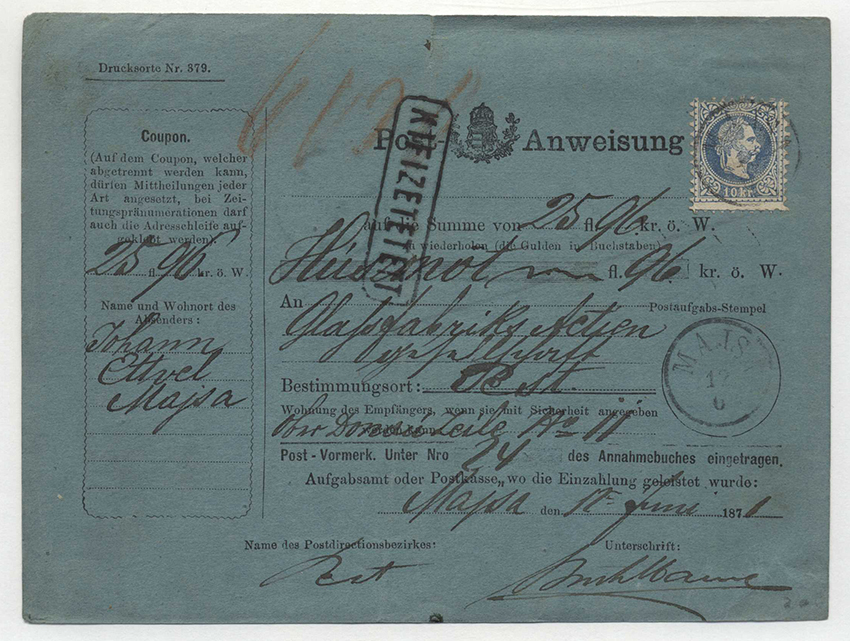 Drucksorte Nr. 379.
Coupon.
(Auf dem Coupon, welcher
abgetrennt werden kann,
dürfen Mittheilungen jeder
Art angesetzt, bei Zei-
tungspränumerationen darf
auch die Adresschleife auf-
geklebt werden).
25 fl. 96 kr. ö. W.
Name und Wohnort des
Absenders:
Johann
Majsa
Post-Anweisung
10 kr.
KIFIZETTETETT
auf die Summe von 25 fl. 96 kr. ö. W.
zu wiederholen (die Gulden in Buchstaben)
fl. 96 kr. ö. W.
An
Postaufgabs-Stempel
Glasfabriks Actien
gesellschaft
MAJSA
12
6
Bestimmungsort: Pest.
Wohnung des Empfängers, wenn sie mit Sicherheit angegeben
No 11
Post-Vormerk. Unter Nro 24 des Annahmebuches eingetragen.
Aufgabsamt oder Postkasse, wo die Einzahlung geleistet wurde:
Majsa den 12 Juni 1871
Name des Postdirectionsbezirkes:
Unterschrift:
Pest